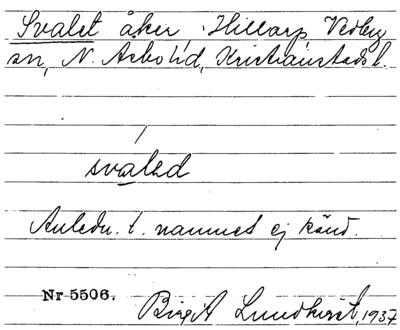 Svalet åker, Hillarp Vedby
sn, N. Åsbo hd, Kristianstads l.
svaled
Anledn. t. namnet ej känd.
Nr 5506. Birgit Lundkvist, 1937